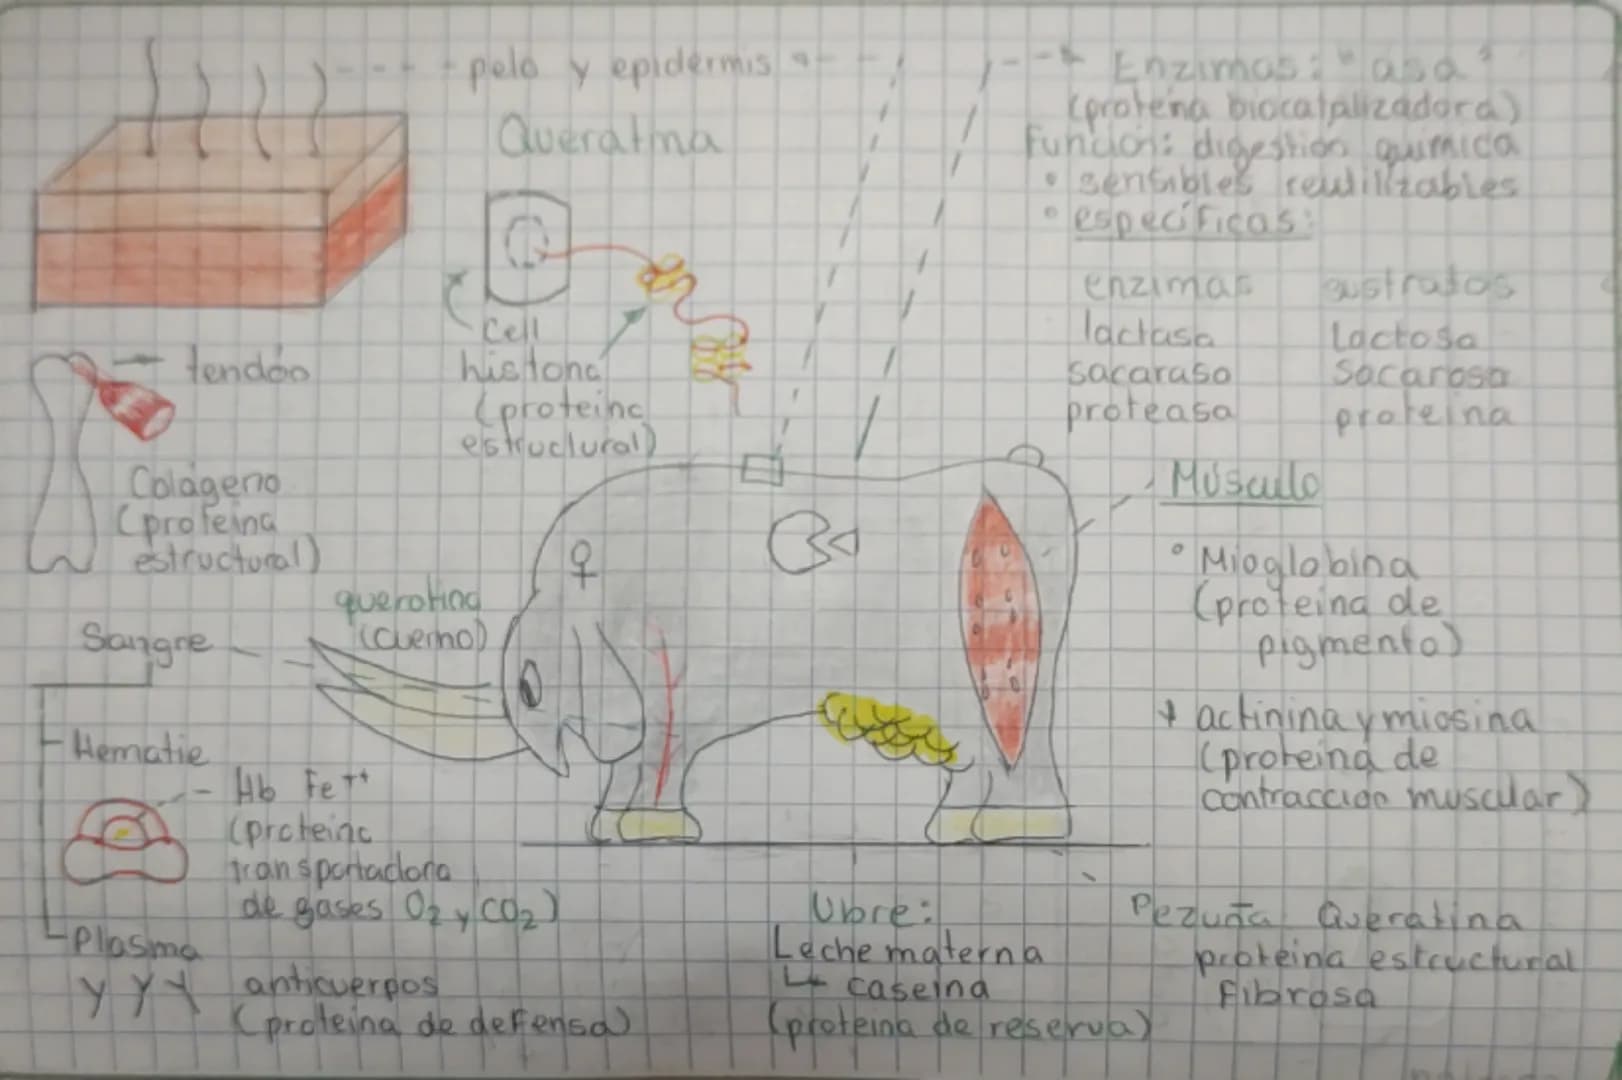 pelo y epidermis
Queratina
Enzimas: "asa"
(proteína biocatalizadora)
Función: digestión química
• sensibles reutilizables
• específicas:
enzimas sustratos
lactasa Lactosa
sacarasa Sacarosa
proteasa proteina
Cell
histona
(proteina
estructural)
tendón
Colágeno
(proteina
estructural)
queratina
(cuerno)
♀
Sangre
Hematie
Hb Fe++
(proteina
transportadora
de gases O2 y CO2)
Plasma
Y Y Y anticuerpos
(proteina de defensa)
Músculo
° Mioglobina
(proteina de
pigmento)
+ actinina y miosina
(proteina de
contraccion muscular)
Ubre:
Leche materna
↳ caseina
(proteina de reserva)
Pezuña Queratina
proteina estructural
Fibrosa